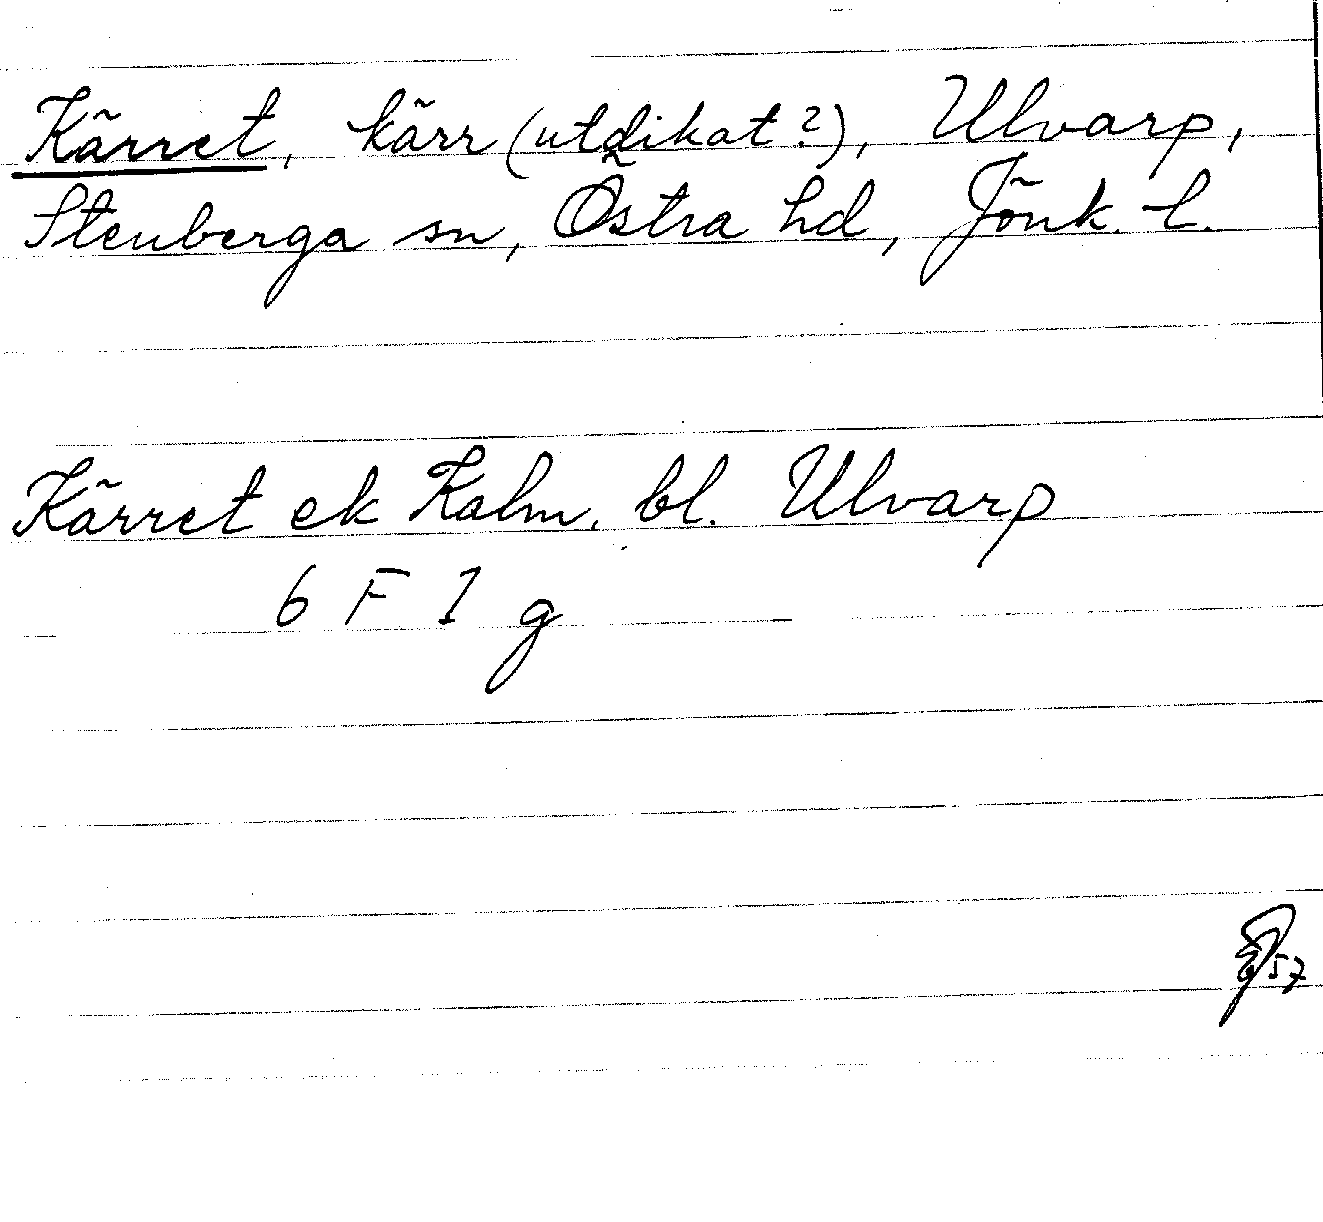 Kärret, kärr (utdikat?), Ulvarp,
Stenberga sn, Östra hd, Jönk. l.
Kärret ek Kalm. bl. Ulvarp
6 F 1 g
57